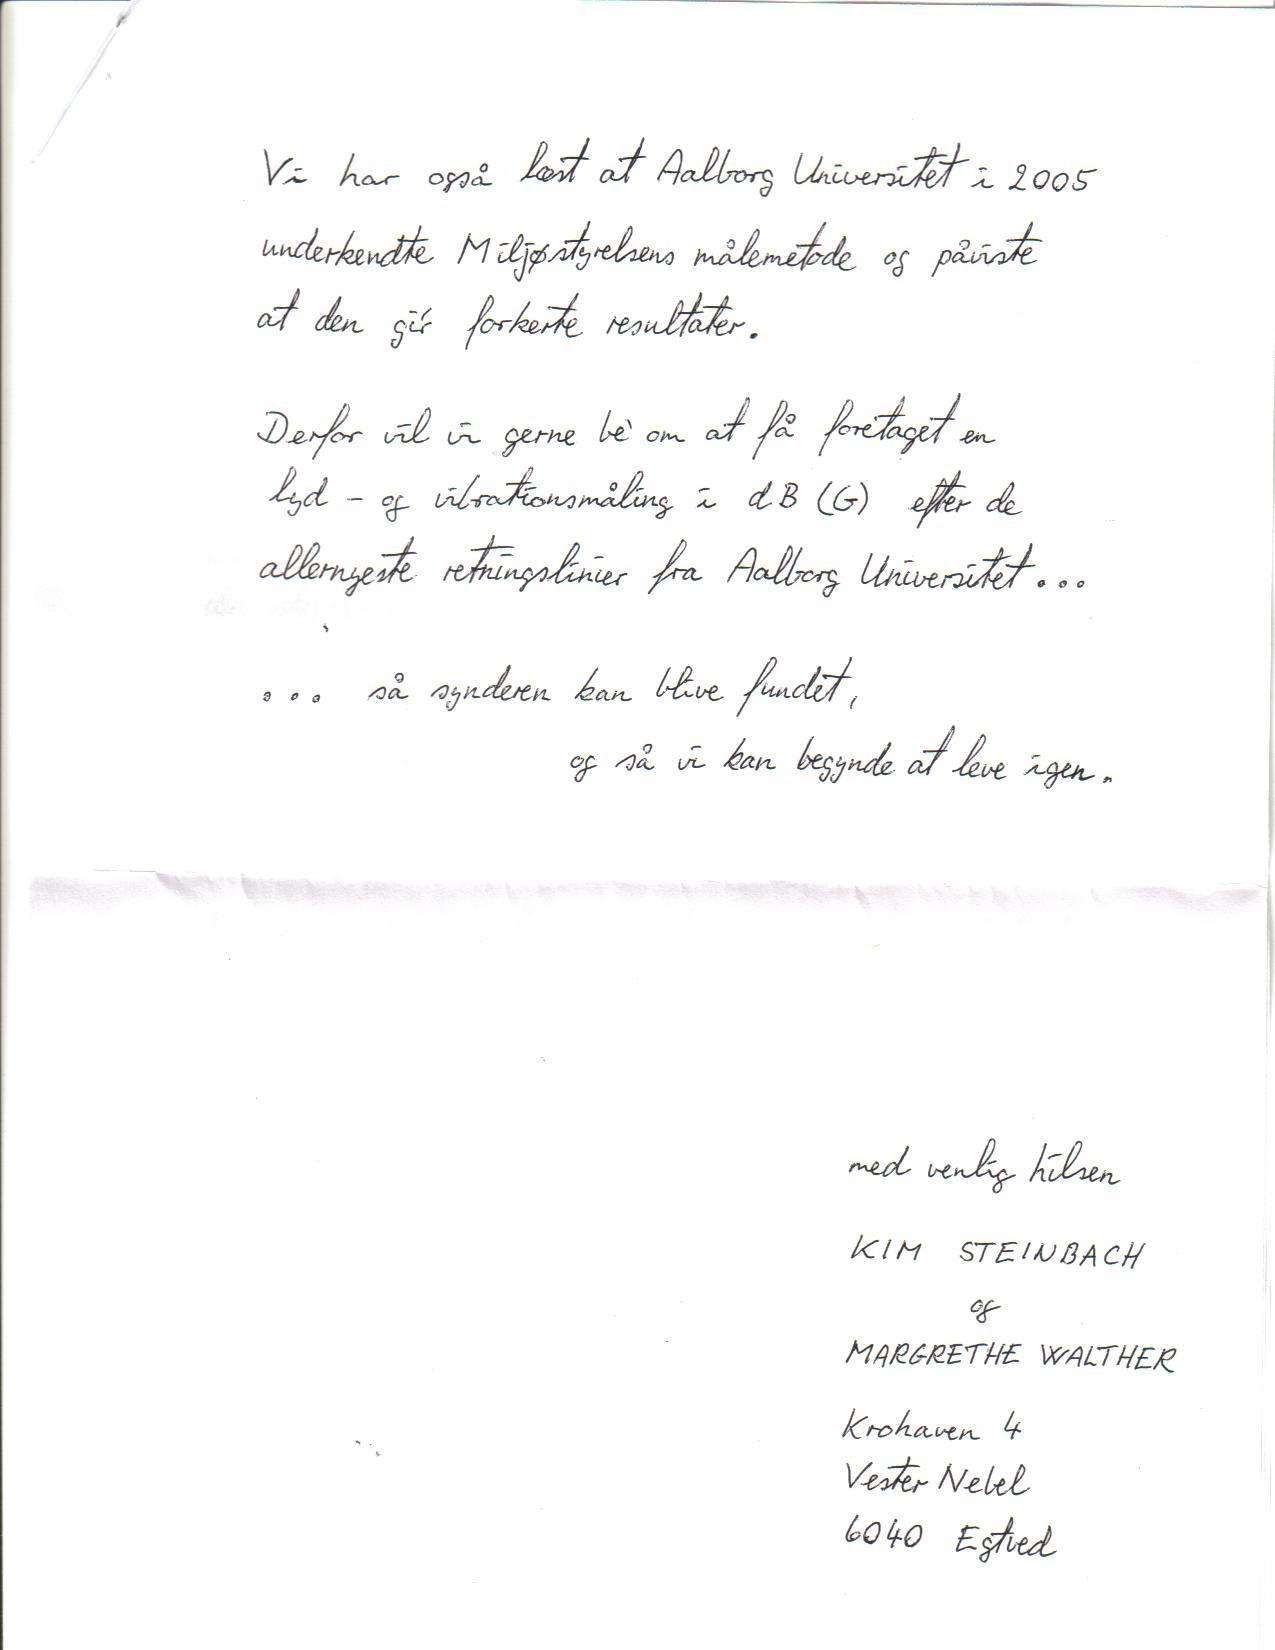 Vi har også læst at Aalborg Universitet i 2005
underkendte Miljøstyrelsens målemetode og påviste
at den gi'r forkerte resultater.
Derfor vil vi gerne be' om at få foretaget en
lyd - og vibrationsmåling i dB (G) efter de
allernyeste retningslinier fra Aalborg Universitet...
... så synderen kan blive fundet,
og så vi kan begynde at leve igen.
med venlig hilsen
KIM STEINBACH
og
MARGRETHE WALTHER
Krohaven 4
Vester Nebel
6040 Egtved